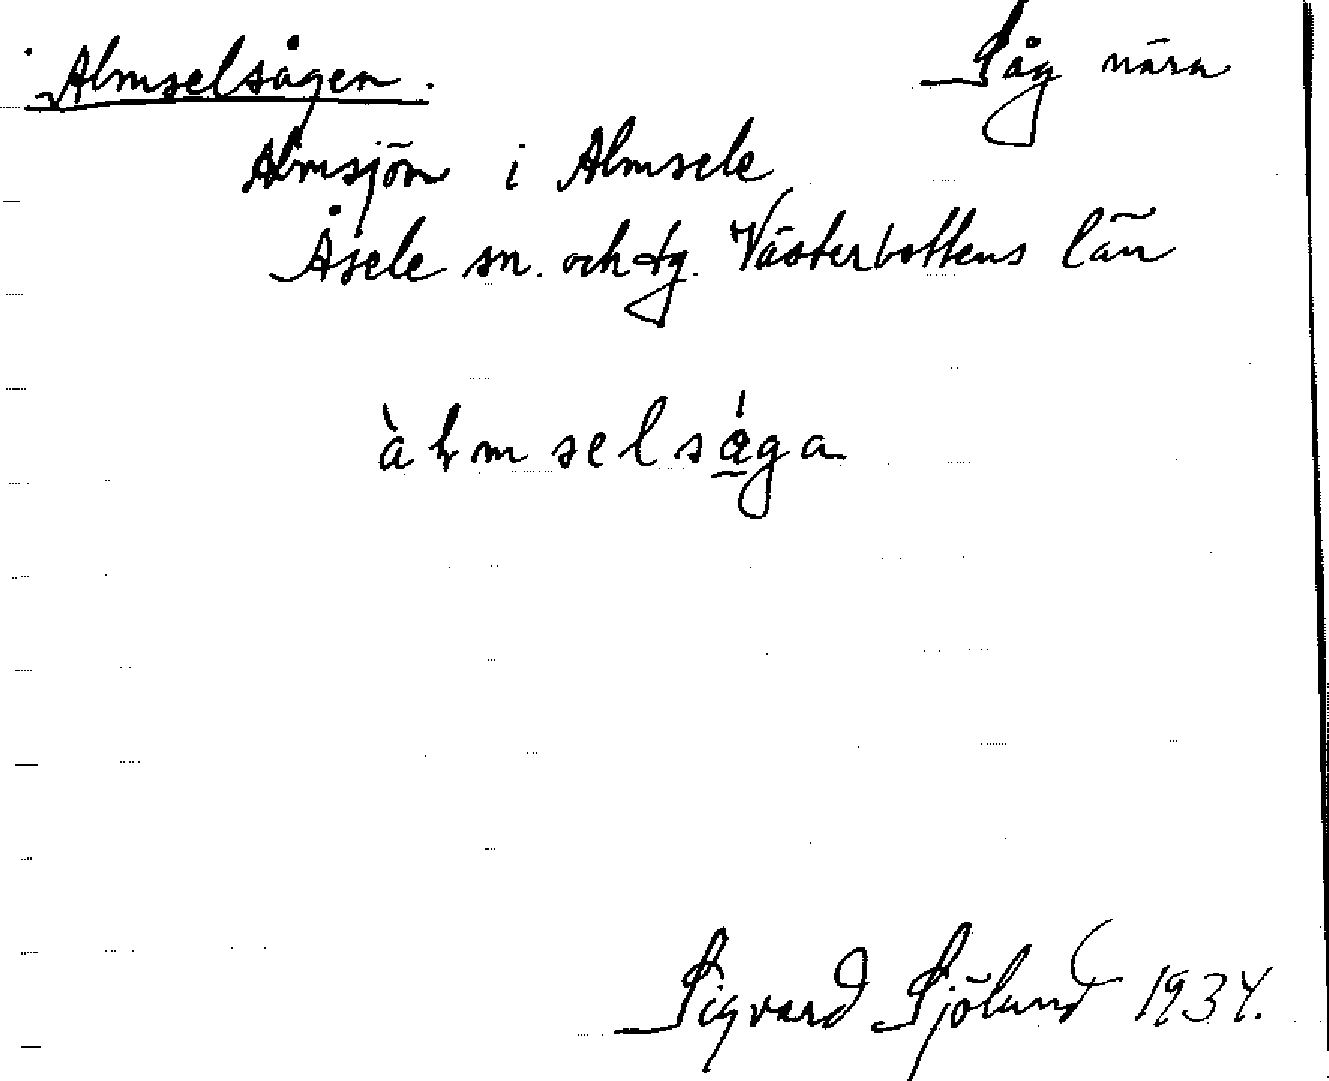 Almselsågen. Såg nära
Almsjön i Almsele
Åsele sn. och tg. Västerbottens län
àlmselsåga
Sigvard Sjölund 1934.